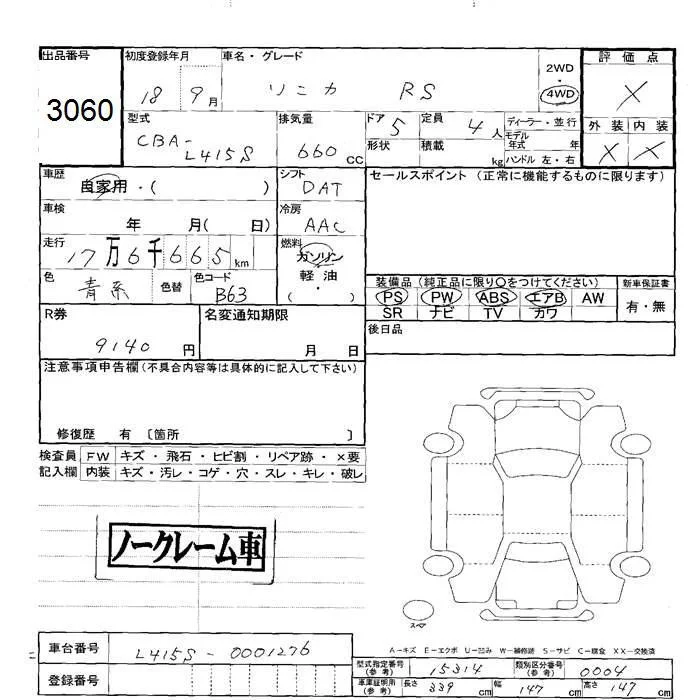 出品番号
3060
初度登録年月
18 9月
車名・グレード
ソニカ RS
2WD
・
4WD
評価点
X
外装 内装
X X
型式
CBA-
L415S
排気量
660 CC
ドア 5
形状
定員 4人
積載 kg
ディーラー・並行
モデル
年式 年
ハンドル 左・右
車歴
自家用・( )
シフト
DAT
セールスポイント (正常に機能するものに限ります)
車検
年 月( 日)
冷房
AAC
走行
17万6千665km
燃料
ガソリン
軽油
( ・ )
色
青系
色替
色コード
B63
装備品 (純正品に限り○をつけてください)
PS PW ABS エアB AW
SR ナビ TV カワ
新車保証書
有・無
R券
9140 円
名変通知期限
月 日
後日品
注意事項申告欄 (不具合内容等は具体的に記入して下さい)
修復歴 有 〔箇所 〕
検査員 FW キズ・飛石・ヒビ割・リペア跡・×要
記入欄 内装 キズ・汚レ・コゲ・穴・スレ・キレ・破レ
ノークレーム車
スペア
A-キズ E-エクボ U-凹み W-補修跡 S-サビ C-腐食 XX-交換済
車台番号
L415S-0001276
登録番号
型式指定番号
(参考)
15314
類別区分番号
(参考)
0004
車庫証明用
(参考)
長さ 339 cm 幅 147 cm 高さ 147 cm